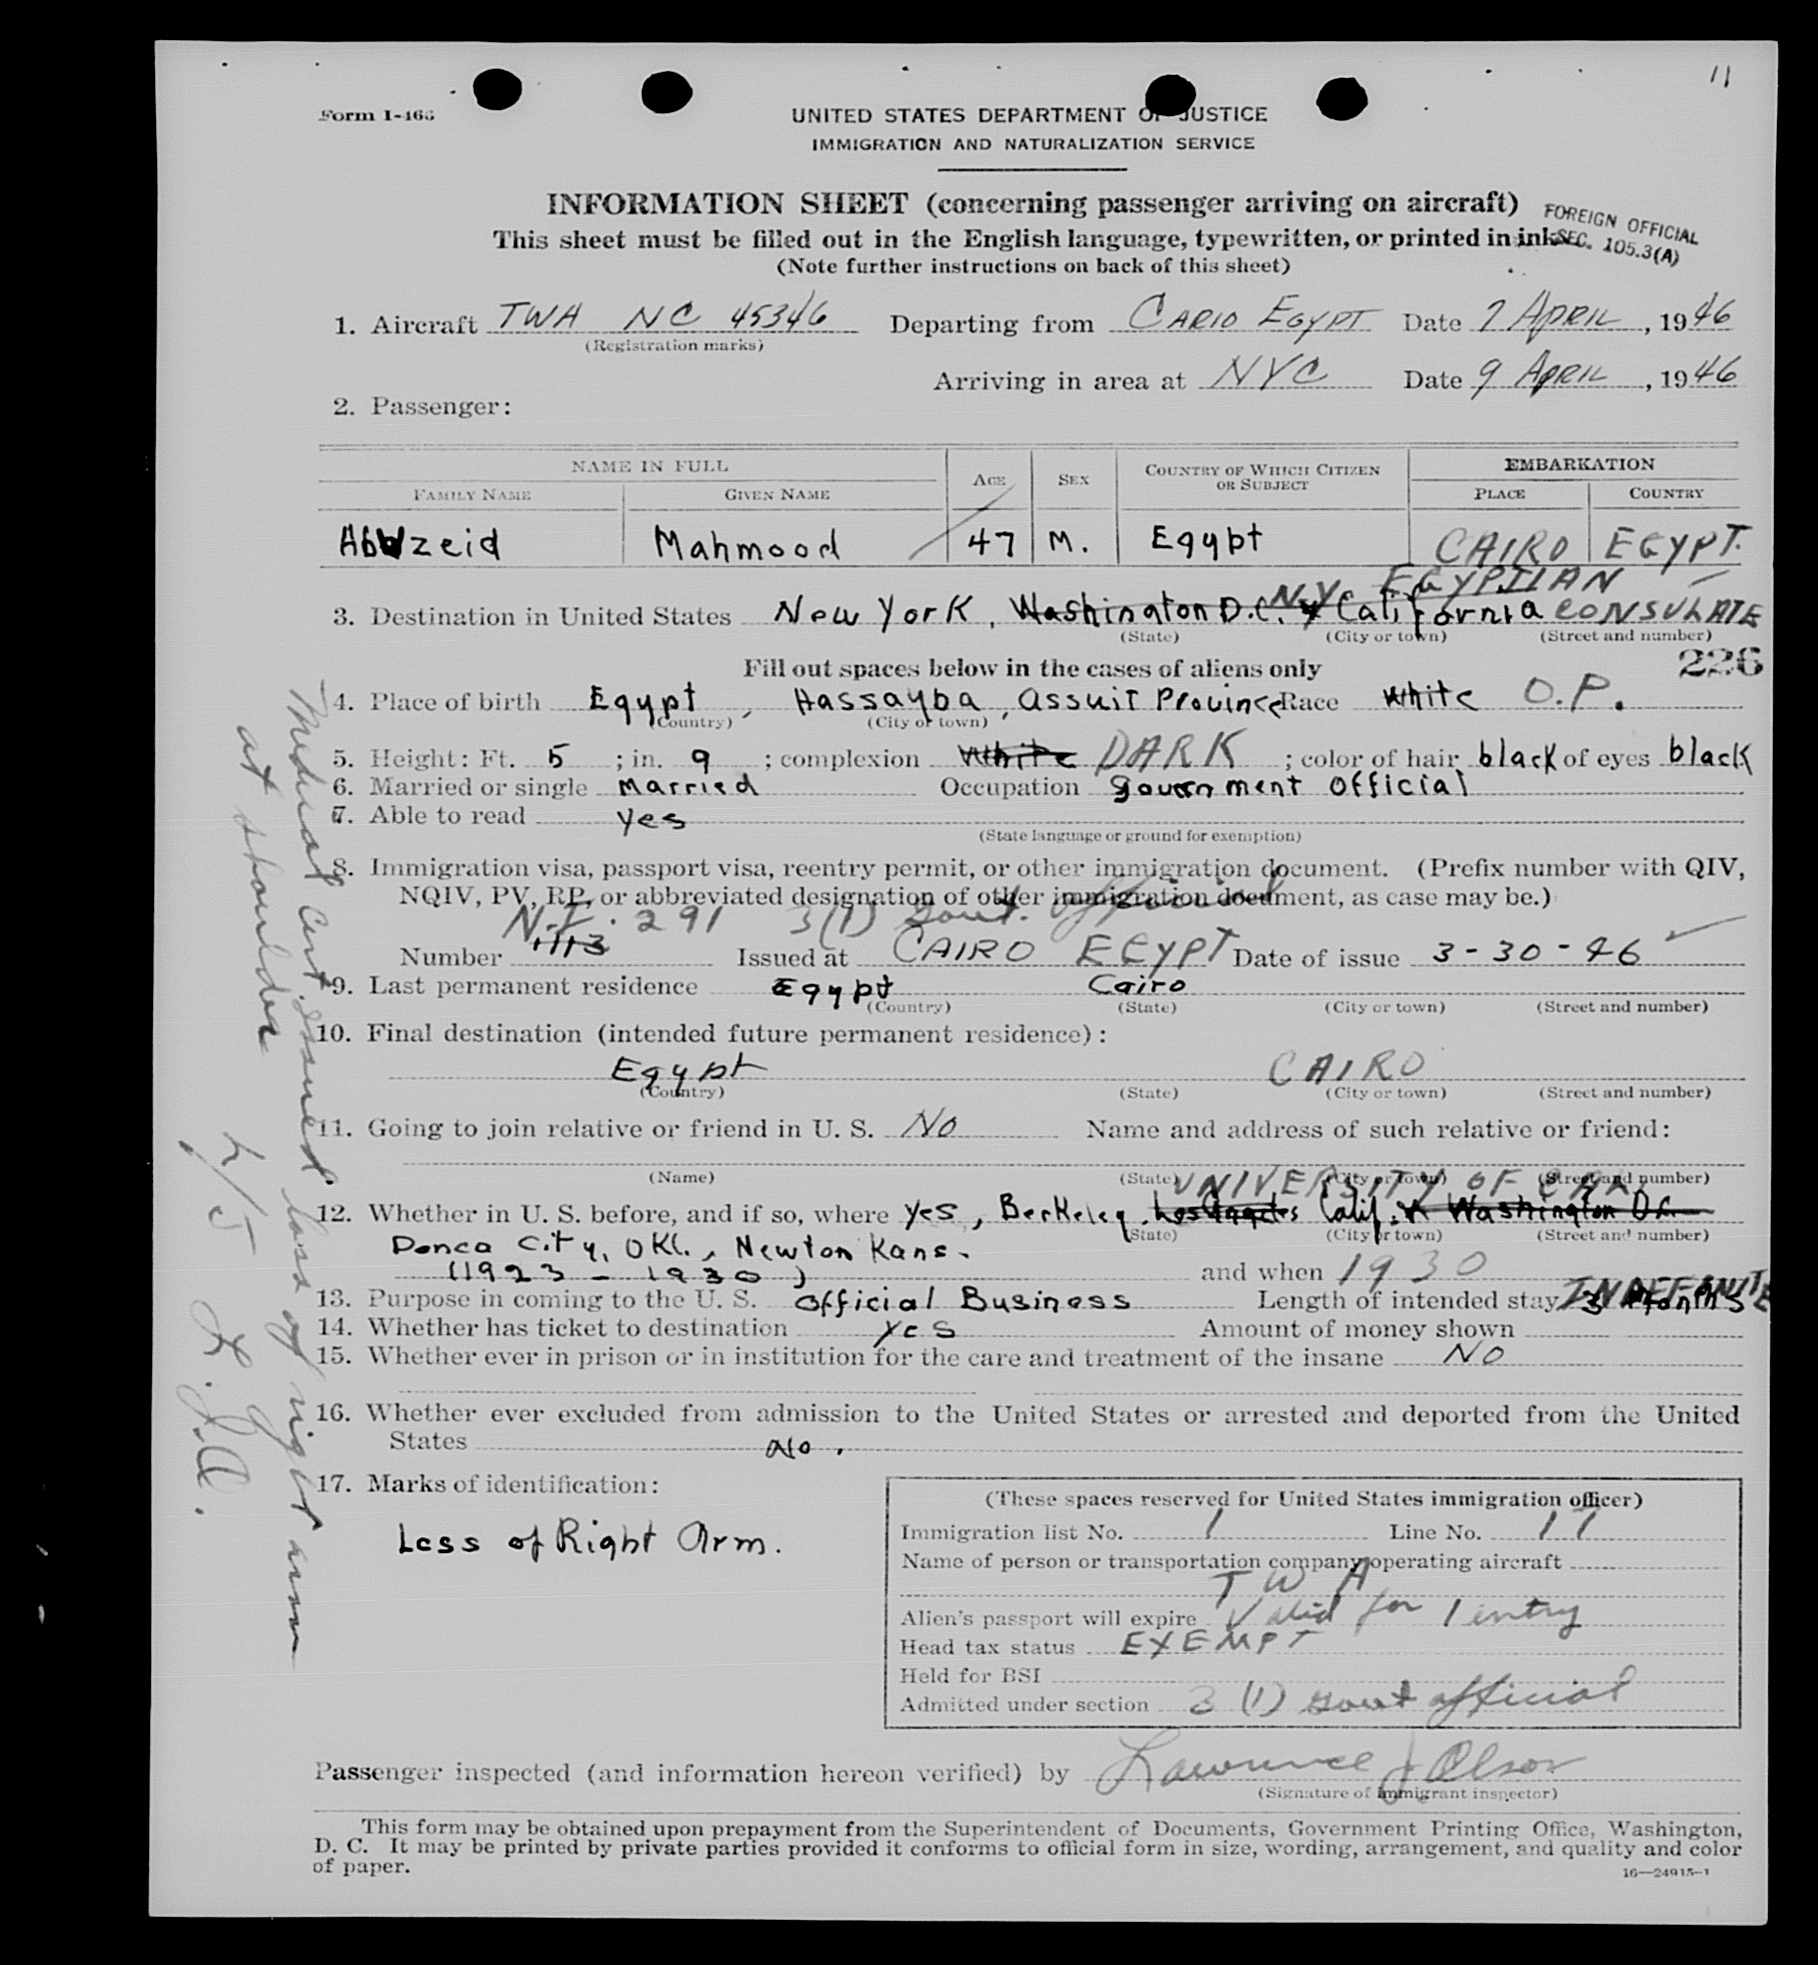 11
Form I-466
UNITED STATES DEPARTMENT OF JUSTICE
IMMIGRATION AND NATURALIZATION SERVICE
INFORMATION SHEET (concerning passenger arriving on aircraft)
This sheet must be filled out in the English language, typewritten, or printed in ink.
(Note further instructions on back of this sheet)
FOREIGN OFFICIAL
SEC. 105.3(A)
1. Aircraft TWA NC 45346 Departing from CARIO EGYPT Date 7 APRIL, 1946
(Registration marks)
Arriving in area at NYC Date 9 APRIL, 1946
2. Passenger:
NAME IN FULL AGE SEX COUNTRY OF WHICH CITIZEN OR SUBJECT EMBARKATION
FAMILY NAME GIVEN NAME PLACE COUNTRY
Abuzeid Mahmood 47 M. Egypt CAIRO EGYPT.
N.Y.C EGYPTIAN
3. Destination in United States New York, Washington D.C. & California CONSULATE
(State) (City or town) (Street and number)
Fill out spaces below in the cases of aliens only
226
4. Place of birth Egypt, Hassayba, Assuit Province Race White O.P.
(Country) (City or town)
5. Height: Ft. 5; in. 9; complexion White DARK; color of hair black of eyes black
6. Married or single Married Occupation government Official
7. Able to read yes
(State language or ground for exemption)
8. Immigration visa, passport visa, reentry permit, or other immigration document. (Prefix number with QIV,
NQIV, PV, RP, or abbreviated designation of other immigration document, as case may be.)
N.I. 291 3(1) Govt. official
Number 1113 Issued at CAIRO EGYPT Date of issue 3-30-46
9. Last permanent residence Egypt Cairo
(Country) (State) (City or town) (Street and number)
10. Final destination (intended future permanent residence):
Egypt CAIRO
(Country) (State) (City or town) (Street and number)
11. Going to join relative or friend in U. S. No Name and address of such relative or friend:
(Name) (State) (City or town) (Street and number)
UNIVERSITY OF CAL.
12. Whether in U. S. before, and if so, where yes, Berkeley, Los Angeles Calif. & Washington D.C.
(State) (City or town) (Street and number)
Ponca City, Okl., Newton Kans.
(1923 - 1930) and when 1930
INDEFANITE
13. Purpose in coming to the U. S. Official Business Length of intended stay 3 Months
14. Whether has ticket to destination yes Amount of money shown
15. Whether ever in prison or in institution for the care and treatment of the insane NO
16. Whether ever excluded from admission to the United States or arrested and deported from the United
States No.
17. Marks of identification:
Loss of Right Arm.
(These spaces reserved for United States immigration officer)
Immigration list No. 1 Line No. 17
Name of person or transportation company operating aircraft
TWA
Alien's passport will expire Valid for 1 entry
Head tax status EXEMPT
Held for BSI
Admitted under section 3 (1) Govt official
Passenger inspected (and information hereon verified) by Lawrence J Olson
(Signature of immigrant inspector)
This form may be obtained upon prepayment from the Superintendent of Documents, Government Printing Office, Washington,
D. C. It may be printed by private parties provided it conforms to official form in size, wording, arrangement, and quality and color
of paper.
16—24915-1
Medical Cert. issued. loss of right arm
at shoulder